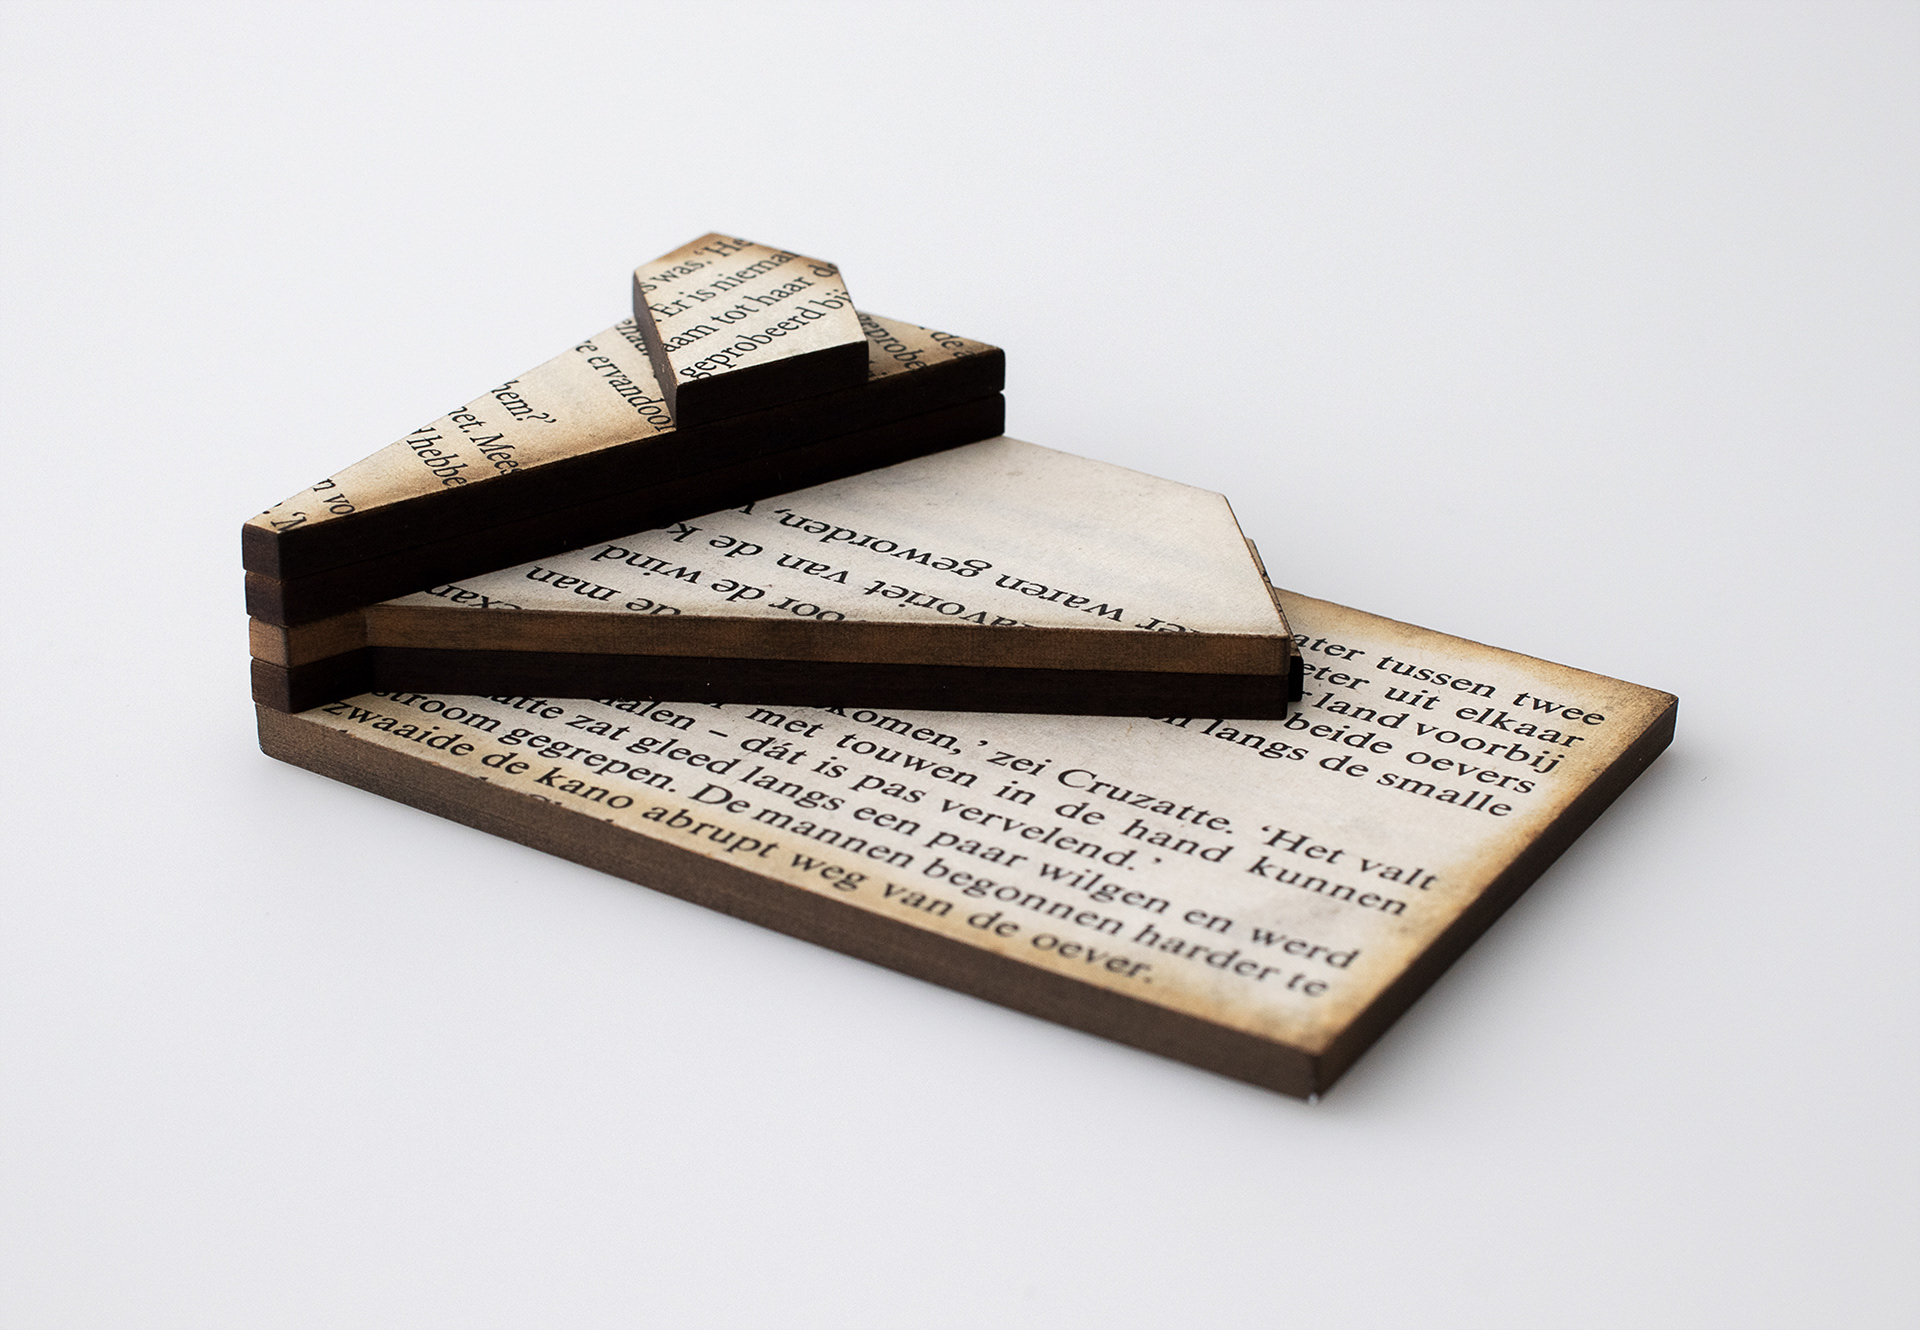 was. 'He
Er is niema
aam tot haar d
geprobeerd bij
geprobe
de
e ervandoor
hem?'
net. Mees
hebbe
n vo
er waren geworden,
favoriet van de k
oor de wind
de man
ater tussen twee
eter uit elkaar
land voorbij
beide oevers
langs de smalle
komen,' zei Cruzatte. 'Het valt
met touwen in de hand kunnen
alen – dát is pas vervelend.'
atte zat gleed langs een paar wilgen en werd
stroom gegrepen. De mannen begonnen harder te
zwaaide de kano abrupt weg van de oever.